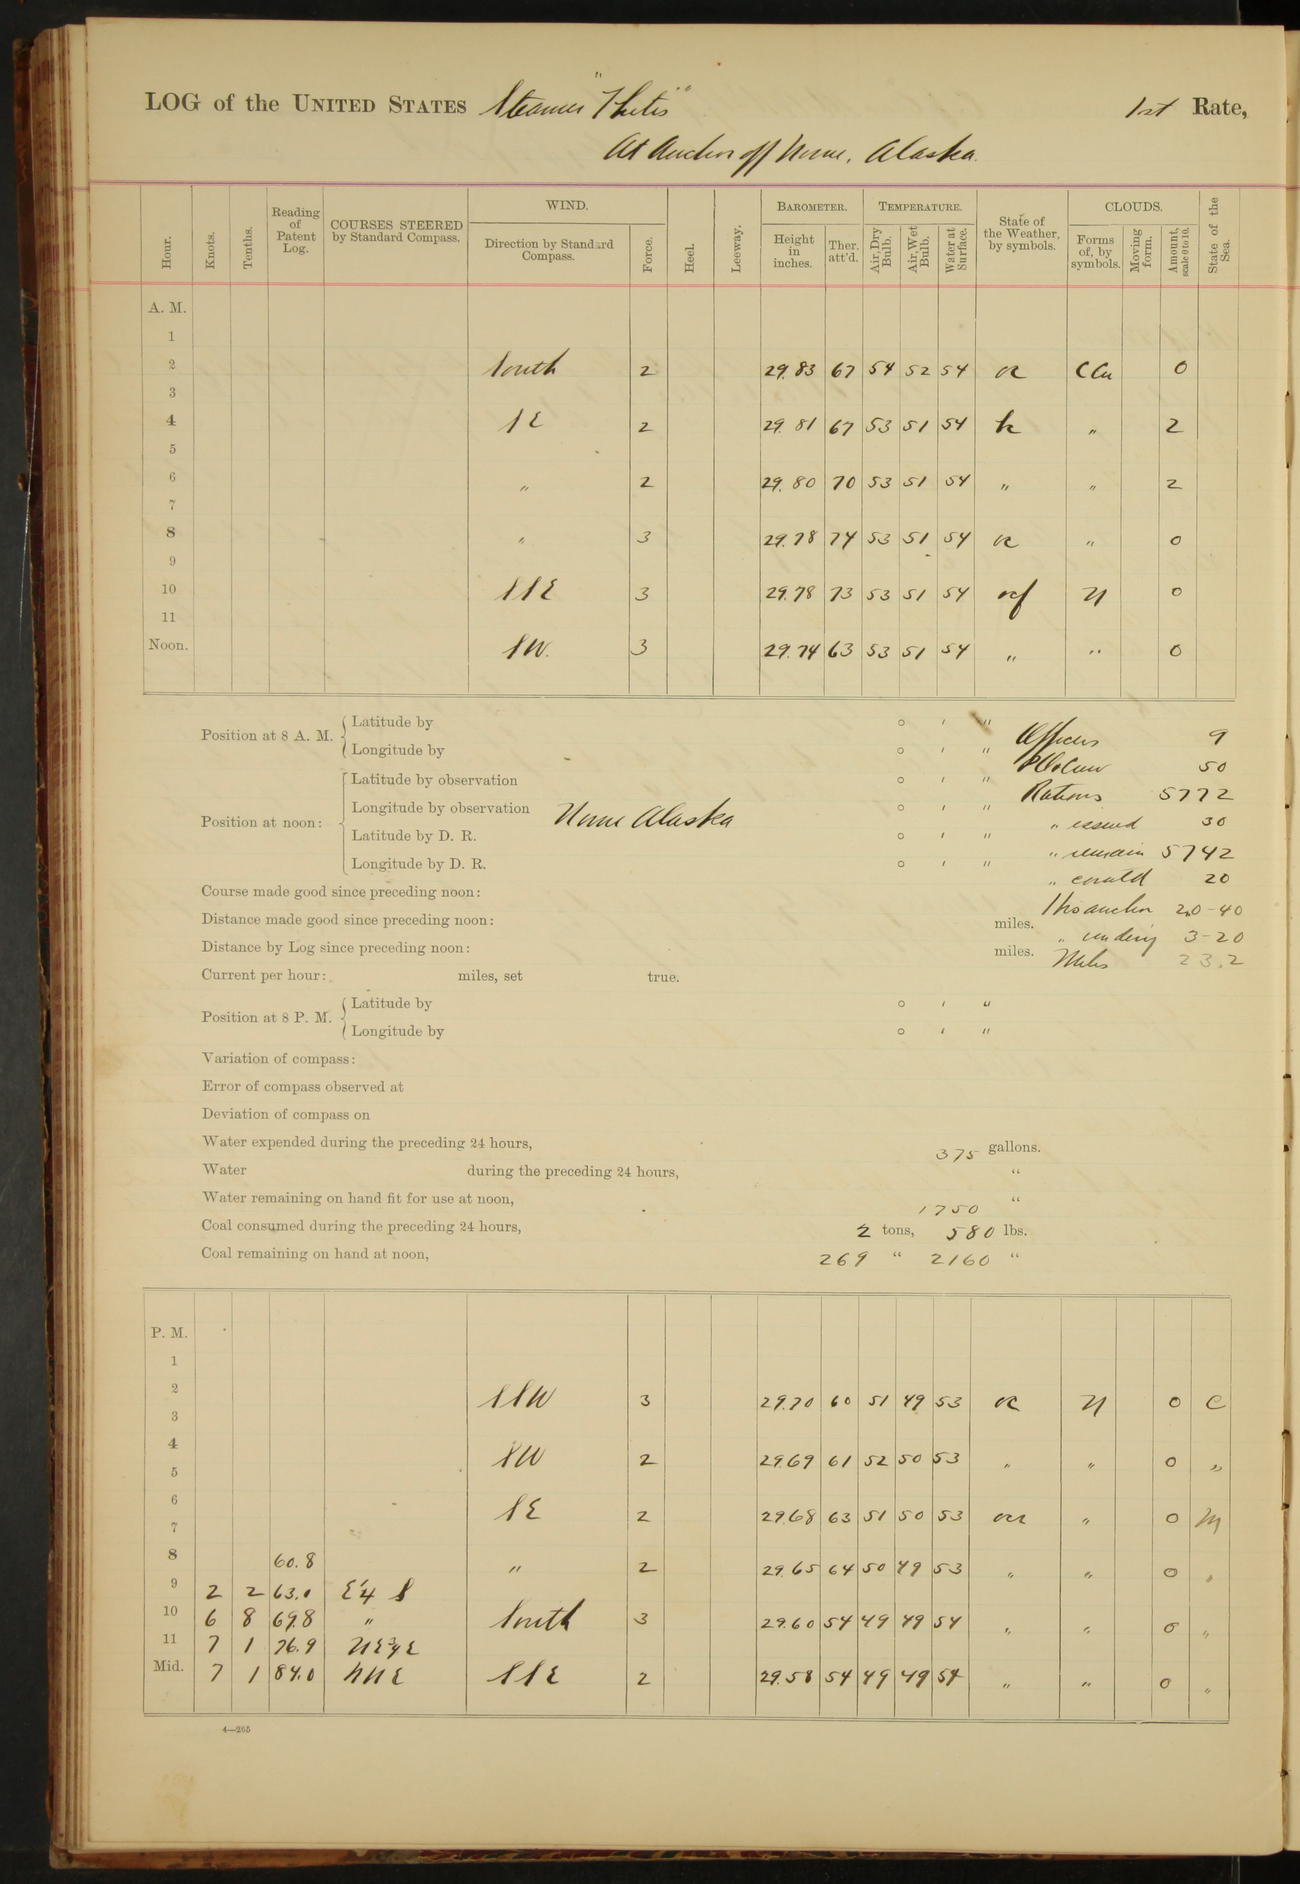 LOG of the UNITED STATES Steamer "Thetis" 1st Rate,
At Anchor off Nome, Alaska.
Hour. Knots. Tenths. Reading of Patent Log. COURSES STEERED by Standard Compass. WIND. Direction by Standard Compass. Force. Heel. Leeway. BAROMETER. Height in inches. Ther. att'd. TEMPERATURE. Air, Dry Bulb. Air, Wet Bulb. Water at Surface. State of the Weather, by symbols. CLOUDS. Forms of, by symbols. Moving form. Amount, scale 0 to 10. State of the Sea.
A. M.
1
2 South 2 29.83 67 54 52 54 oc CCu 0
3
4 SE 2 29.81 67 53 51 54 " 2
5
6 " 2 29.80 70 53 51 54 " " 2
7
8 " 3 29.78 74 53 51 54 oc " 0
9
10 SSE 3 29.78 73 53 51 54 ocf N 0
11
Noon. SW. 3 29.74 63 53 51 54 " " 0
Position at 8 A. M. Latitude by ° ' " Officers 9
Longitude by ° ' " 50
Position at noon: Latitude by observation ° ' " Rations 5772
Longitude by observation Nome Alaska ° ' " " issued 30
Latitude by D. R. ° ' " " remain 5742
Longitude by D. R. ° ' " " 20
Course made good since preceding noon:
Distance made good since preceding noon: miles. Hrs anchor 20-40
Distance by Log since preceding noon: miles. " underwy 3-20
Current per hour: miles, set true. Miles 23.2
Position at 8 P. M. Latitude by ° ' "
Longitude by ° ' "
Variation of compass:
Error of compass observed at
Deviation of compass on
Water expended during the preceding 24 hours, 375 gallons.
Water during the preceding 24 hours, "
Water remaining on hand fit for use at noon, 1750 "
Coal consumed during the preceding 24 hours, 2 tons, 580 lbs.
Coal remaining on hand at noon, 269 " 2160 "
P. M.
1
2 SSW 3 29.70 60 51 49 53 oc N 0 C
3
4 SW 2 29.69 61 52 50 53 " " 0 "
5
6 SE 2 29.68 63 51 50 53 " 0 M
7
8 60.8 " 2 29.65 64 50 49 53 " " 0 "
9 2 2 63.0 E¼ S
10 6 8 69.8 " South 3 29.60 54 49 49 54 " " 0 "
11 7 1 76.9 NE¾E
Mid. 7 1 84.0 NNE SSE 2 29.58 54 49 49 54 " " 0 "
4—265